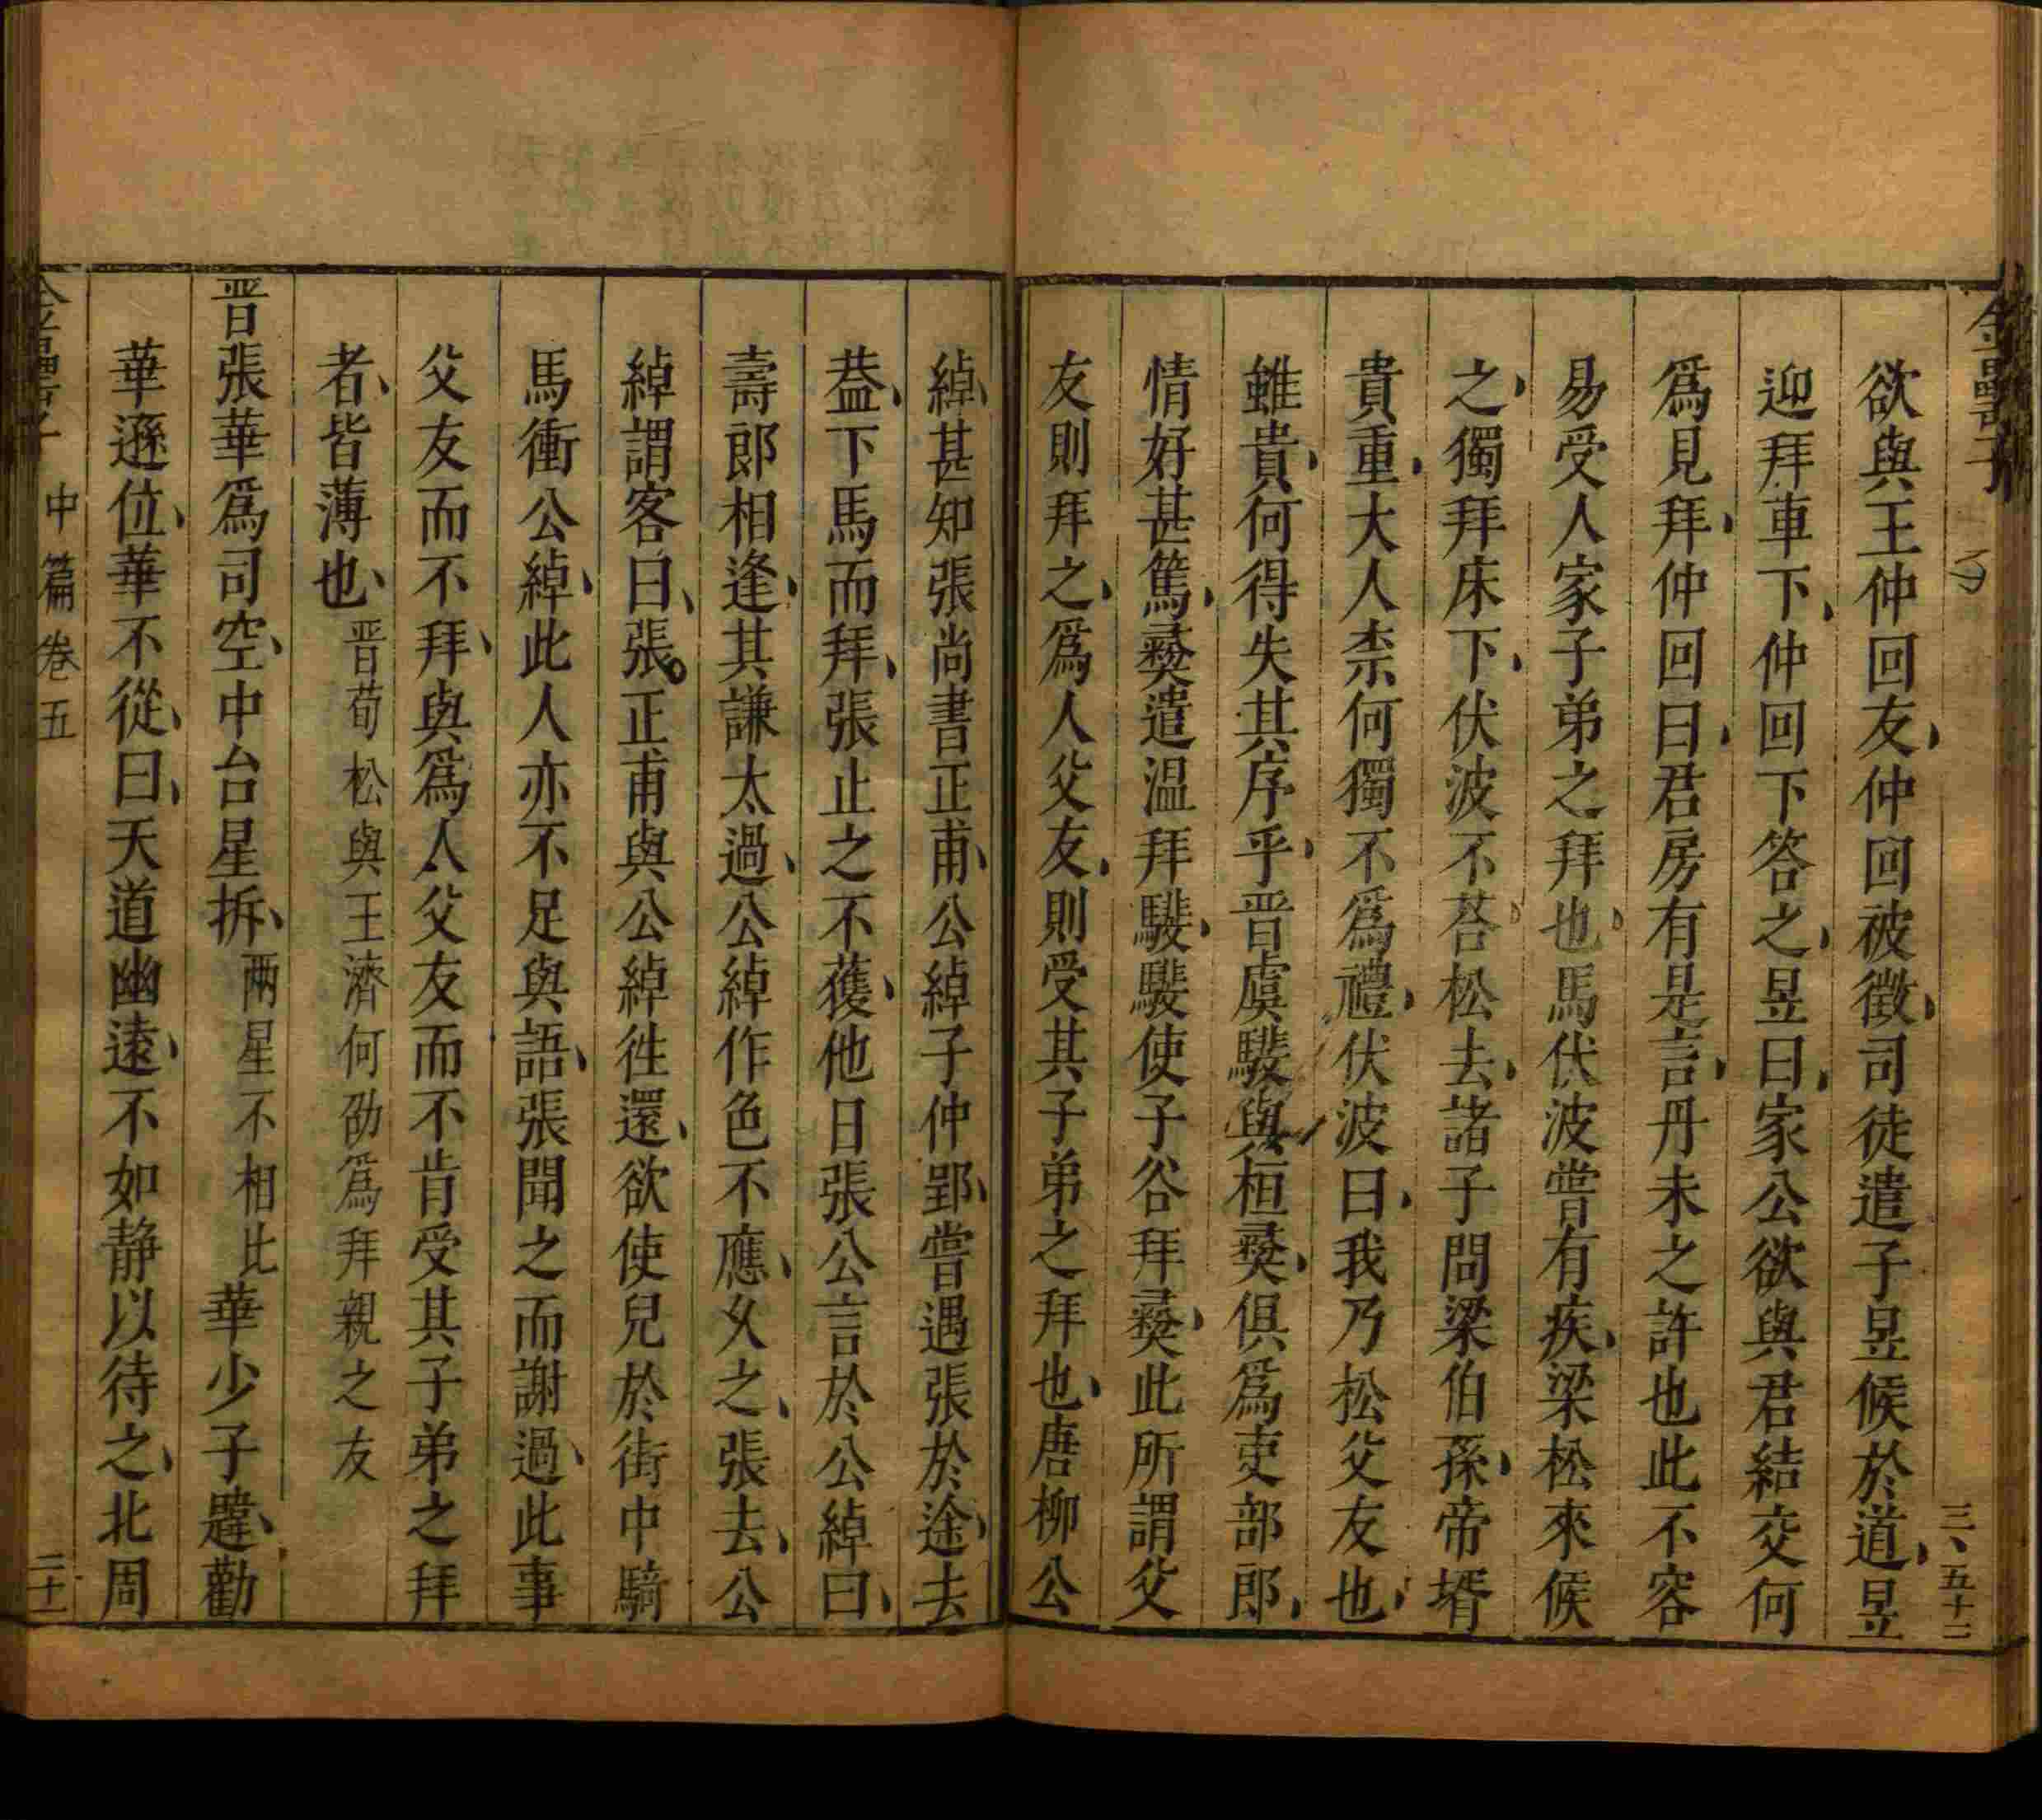 金罍子
三、五十二
欲與王仲回友仲回被徵司徒遣子昱候於道昱
迎拜車下仲回下答之昱曰家公欲與君結交何
爲見拜仲回曰君房有是言丹未之許也此不容
易受人家子弟之拜也馬伏波嘗有疾梁松來候
之獨拜床下伏波不荅松去諸子問梁伯孫帝壻
貴重大人柰何獨不爲禮伏波曰我乃松父友也
雖貴何得失其序乎晋虞𩦎與桓彛俱爲吏部郎
情好甚篤彛遣温拜𩦎𩦎使子谷拜彛此所謂父
友則拜之爲人父友則受其子弟之拜也唐柳公
綽甚知張尚書正甫公綽子仲郢嘗遇張於途去
葢下馬而拜張止之不獲他日張公言於公綽曰
壽郎相逢其謙太過公綽作色不應乆之張去公
綽謂客曰張正甫與公綽徃還欲使兒於街中騎
馬衝公綽此人亦不足與語張聞之而謝過此事
父友而不拜與爲人父友而不肯受其子弟之拜
者皆薄也晋荀松與王濟何劭爲拜親之友
晋張華爲司空中台星拆兩星不相比華少子韙勸
華遜位華不從曰天道幽遠不如静以待之北周
金罍子 中篇卷五 二十一